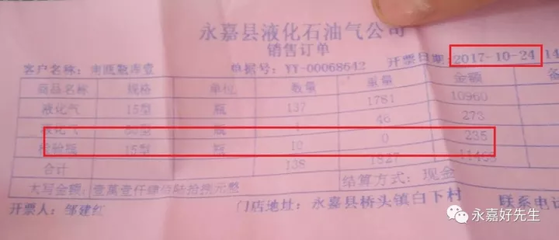 永嘉县液化石油气公司
销售订单
客户名称: 单据号: YY-00068642 开票日期: 2017-10-24
商品名称 规格 单位 数量 重量 金额
液化气 15型 瓶 137 1781 10960
液化气 瓶 46 273
检验瓶 15型 瓶 10 0 235
合计 138 1827
大写金额: 结算方式: 现金
开票人: 邹建红 门店地址: 永嘉县桥头镇白下村 联系电话
永嘉好先生